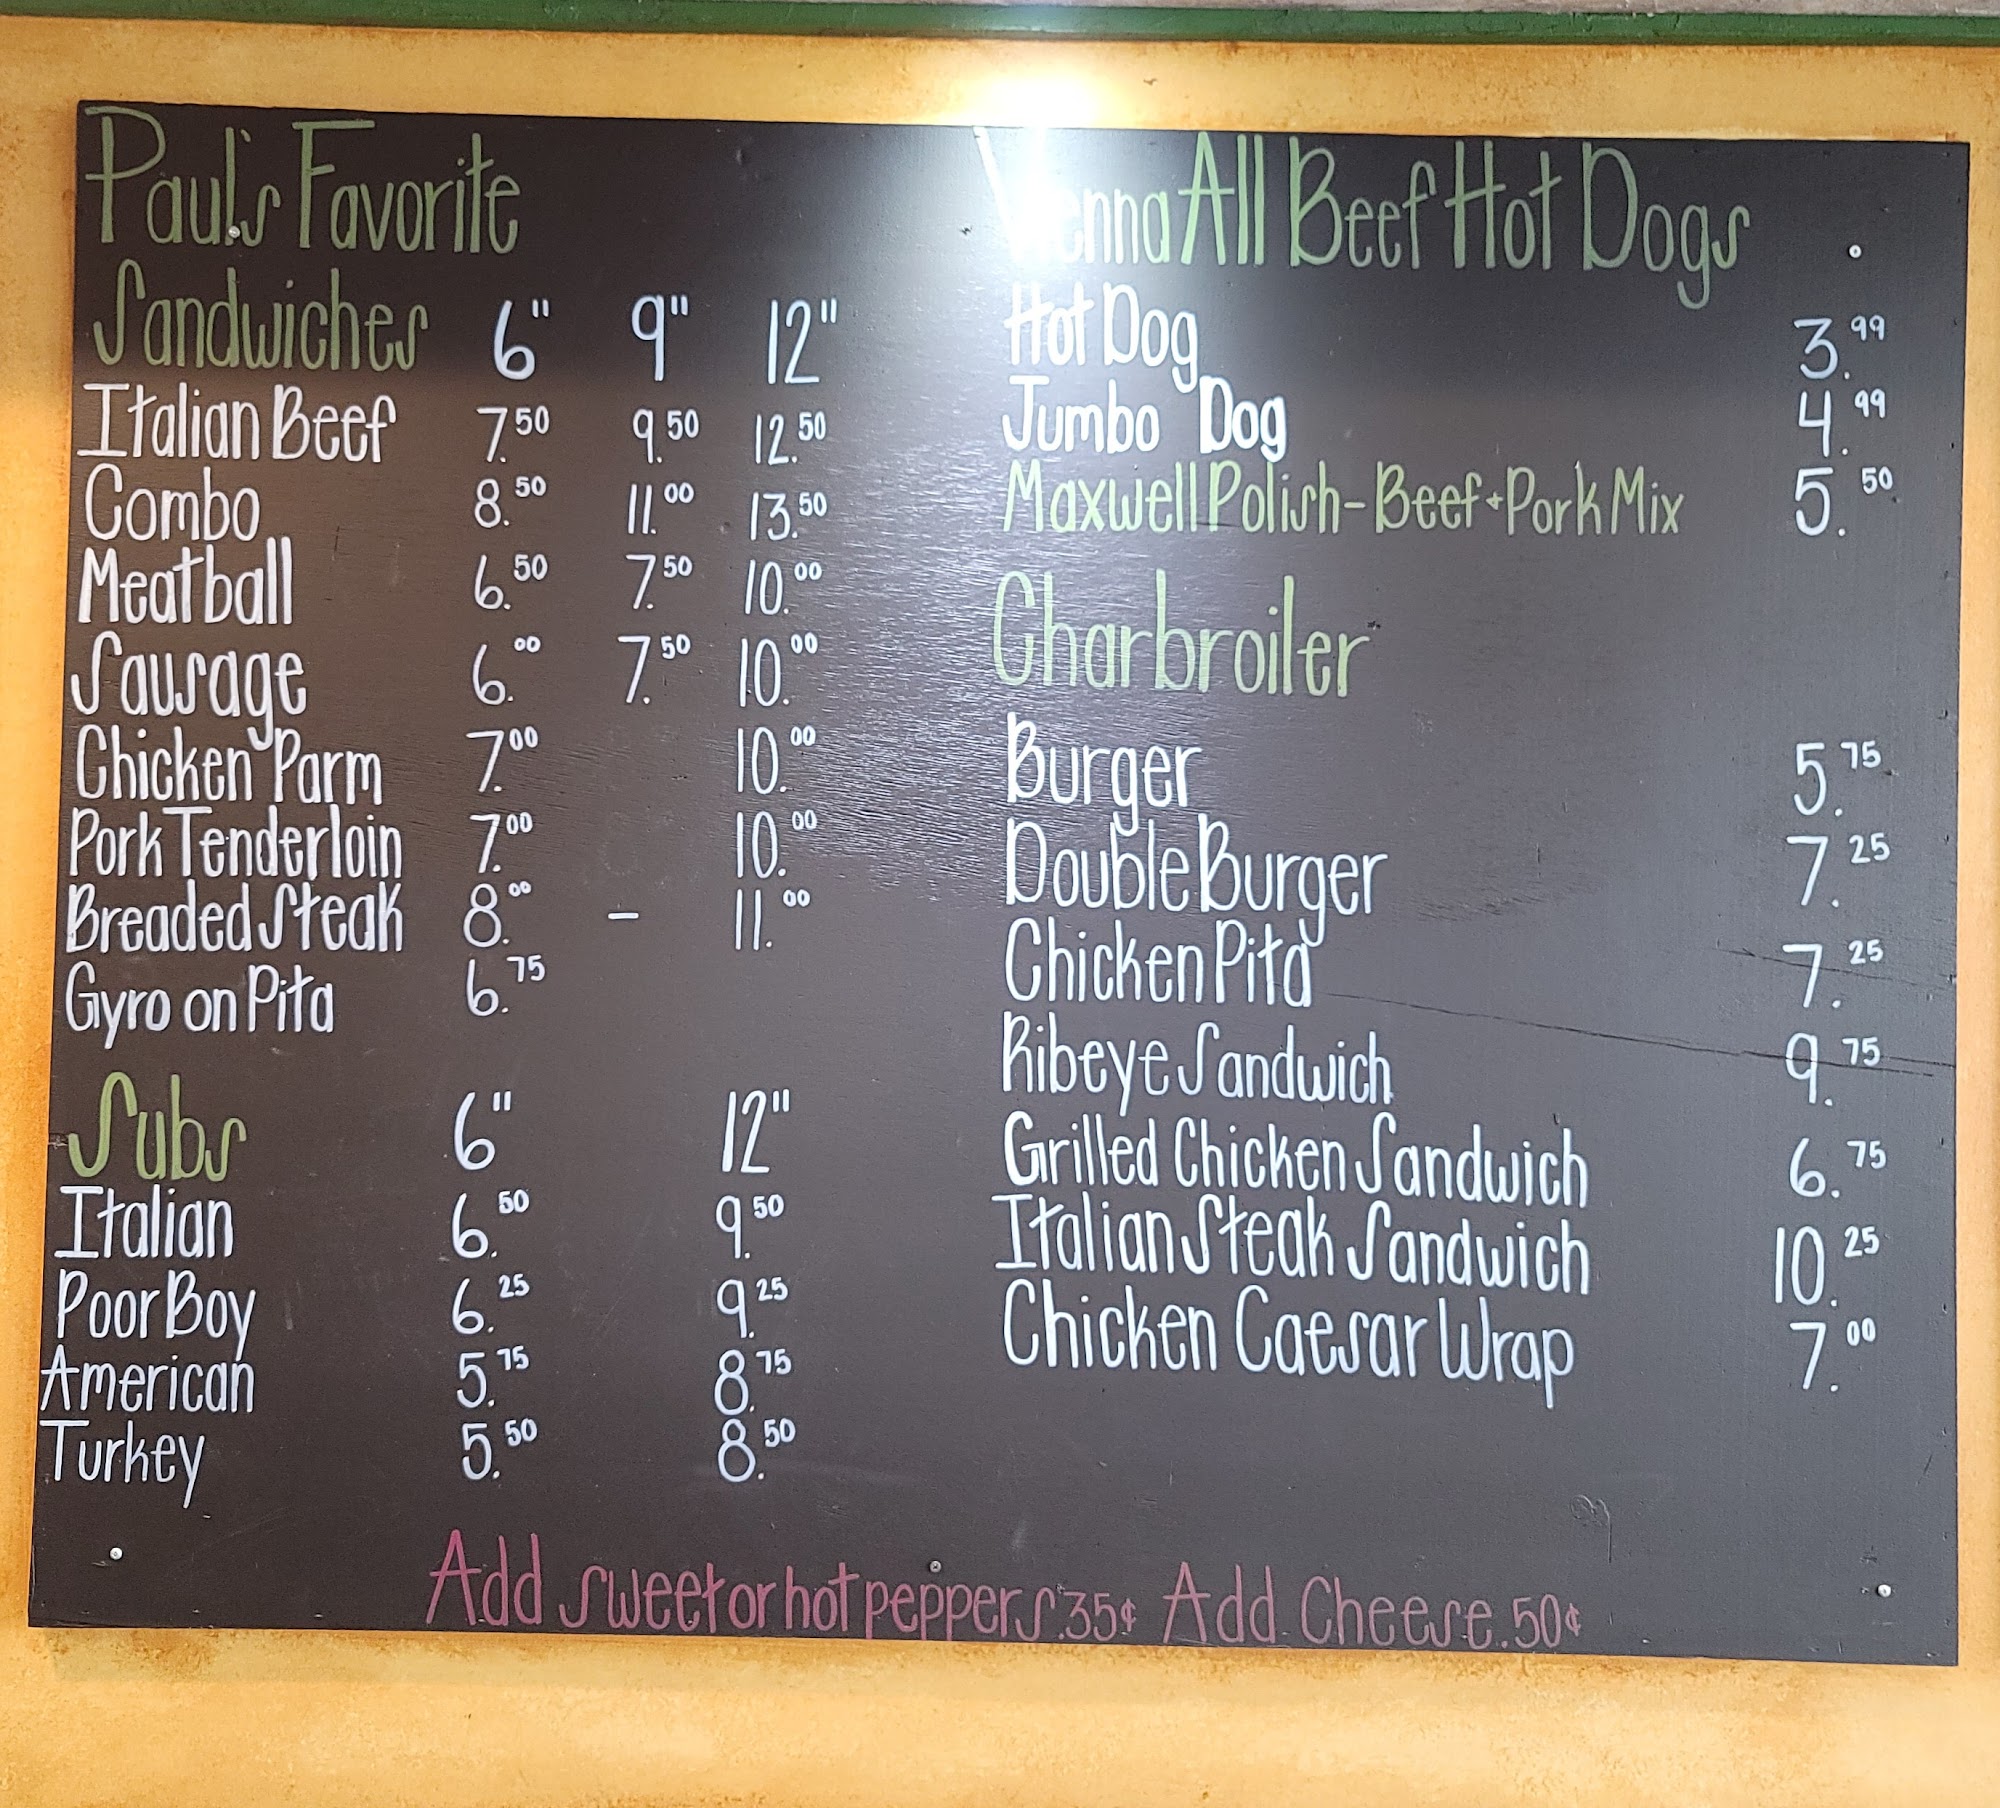 Paul's Favorite
Sandwiches 6" 9" 12"
Italian Beef 7.50 9.50 12.50
Combo 8.50 11.00 13.50
Meatball 6.50 7.50 10.00
Sausage 6.00 7.50 10.00
Chicken Parm 7.00 10.00
Pork Tenderloin 7.00 10.00
Breaded Steak 8.00 - 11.00
Gyro on Pita 6.75
Subs 6" 12"
Italian 6.50 9.50
Poor Boy 6.25 9.25
American 5.75 8.75
Turkey 5.50 8.50
Vienna All Beef Hot Dogs
Hot Dog 3.99
Jumbo Dog 4.99
Maxwell Polish - Beef + Pork Mix 5.50
Charbroiler
Burger 5.75
Double Burger 7.25
Chicken Pita 7.25
Ribeye Sandwich 9.75
Grilled Chicken Sandwich 6.75
Italian Steak Sandwich 10.25
Chicken Caesar Wrap 7.00
Add sweet or hot peppers .35¢ Add Cheese .50¢